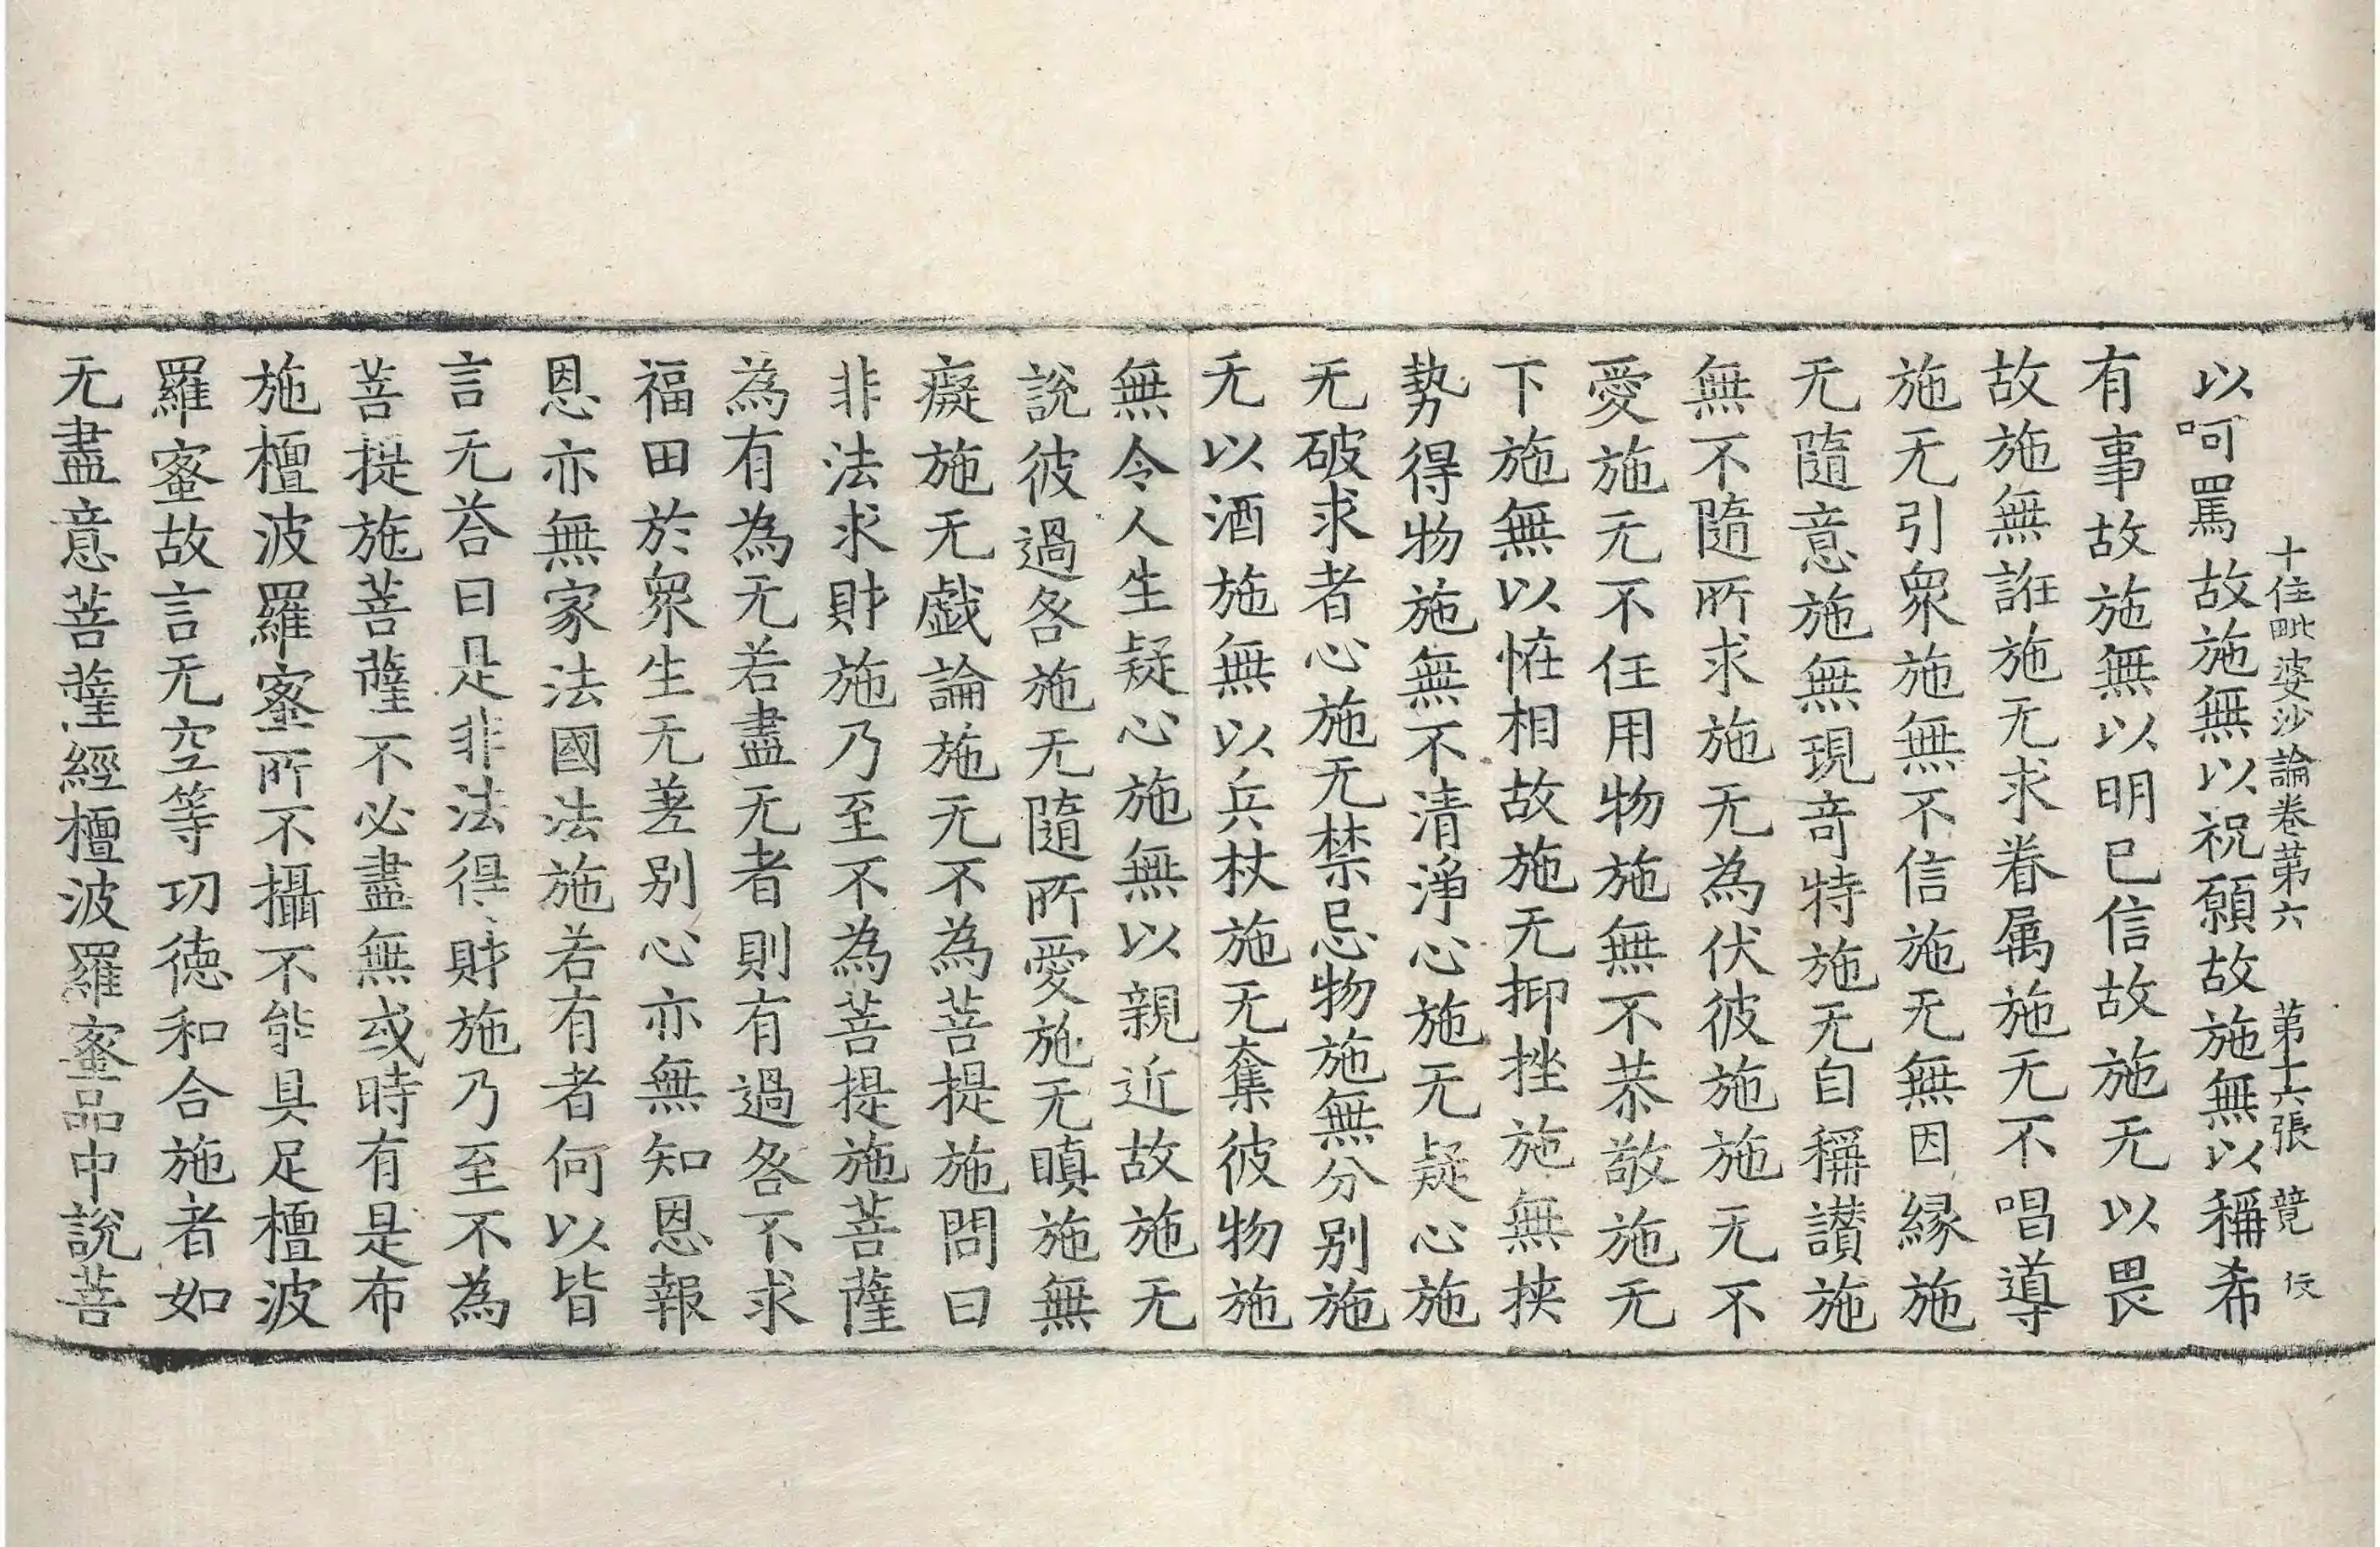 十住毗婆沙論卷第六 第十六張 竟 行
以呵罵故施無以祝願故施無以稱希
有事故施無以明已信故施无以畏
故施無誑施无求眷属施无不唱導
施无引衆施無不信施无無因縁施
无隨意施無現奇特施无自稱讃施
無不隨所求施无為伏彼施施无不
愛施无不任用物施無不恭敬施无
下施無以恠相故施无抑挫施無挟
勢得物施無不清淨心施无疑心施
无破求者心施无禁忌物施無分别施
无以酒施無以兵杖施无奪彼物施
無令人生疑心施無以親近故施无
說彼過咎施无隨所愛施无瞋施無
癡施无戯論施无不為菩提施問曰
非法求財施乃至不為菩提施菩薩
為有為无若盡无者則有過咎不求
福田於衆生无差别心亦無知恩報
恩亦無家法國法施若有者何以皆
言无荅曰是非法得財施乃至不為
菩提施菩薩不必盡無或時有是布
施檀波羅蜜所不攝不能具足檀波
羅蜜故言无空等功徳和合施者如
无盡意菩薩經檀波羅蜜品中說菩